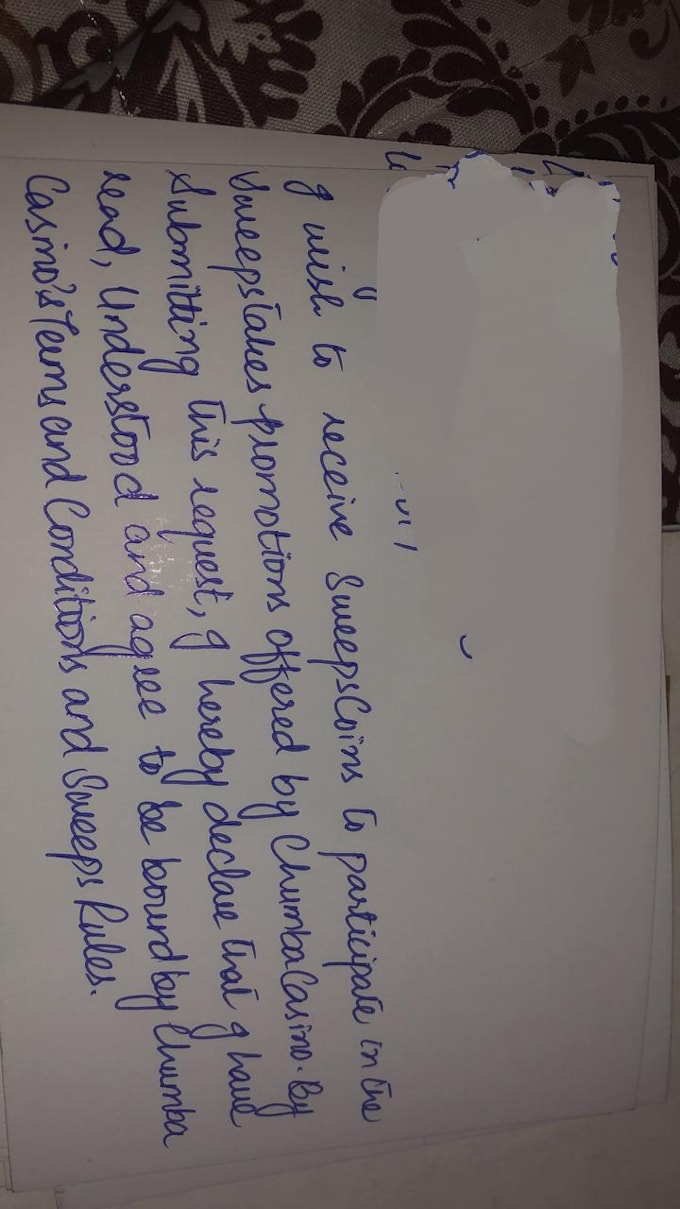 I wish to receive SweepsCoins to participate in the
Sweepstakes promotions offered by Chumba Casino. By
Submitting this request, I hereby declare that I have
read, Understood and agree to be bound by Chumba
Casino's Terms and Conditions and Sweeps Rules.